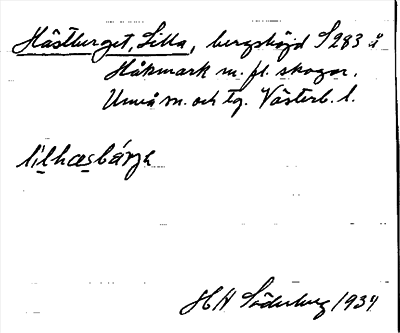 Hästberget, Lilla, bergshöjd S 283 å
Håkmark m. fl. skogar.
Umeå sn. och tg. Västerb. l.
lilhæsbárjə
H H Söderberg 1934